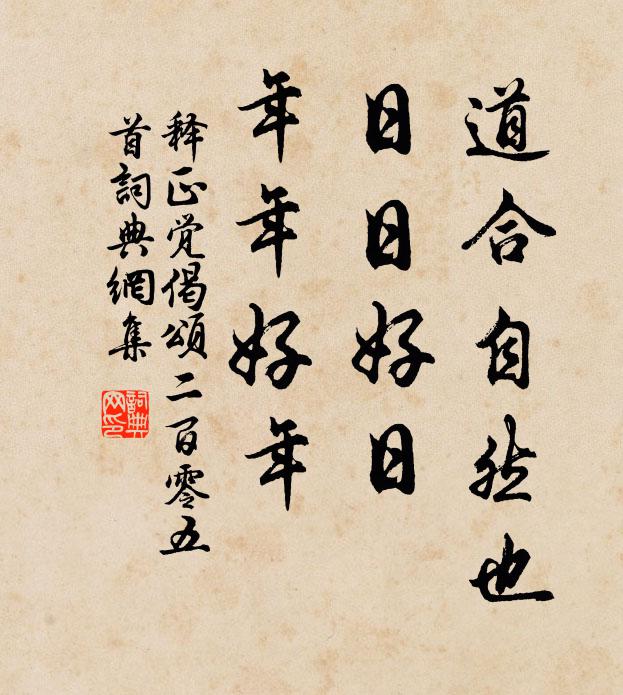 道合自然也
日日好日
年年好年
释正觉偈頌二百零五
首詞典網集
詞典
网印